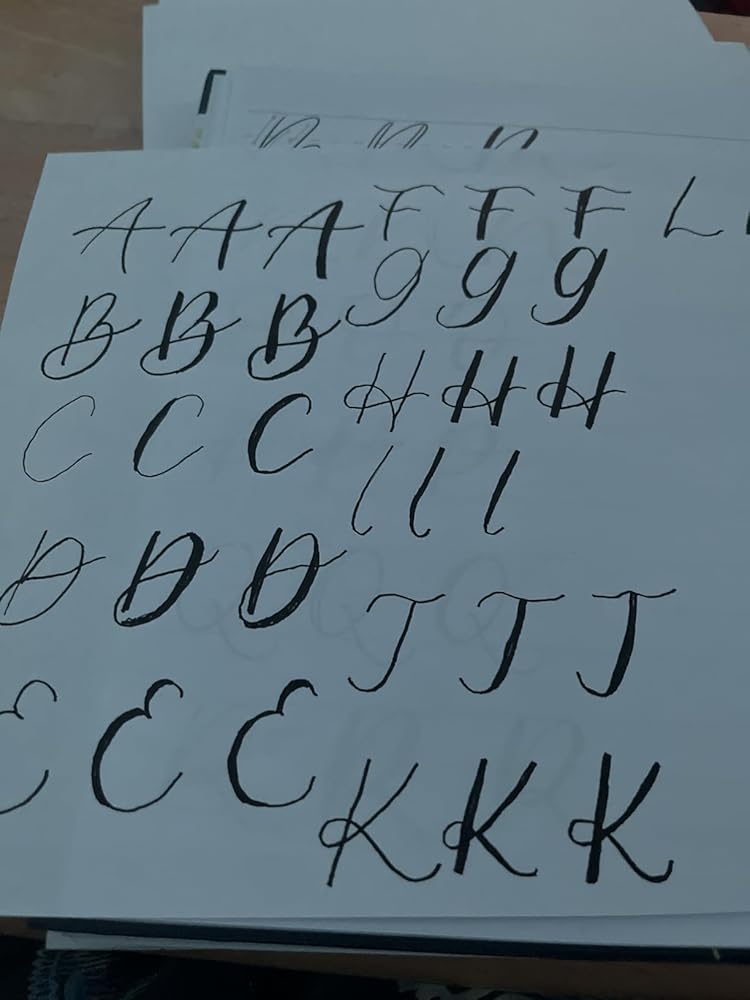 A A A F F F L
B B B g g g
C C C H H H
l l l
D D D
J J J
E E E
K K K